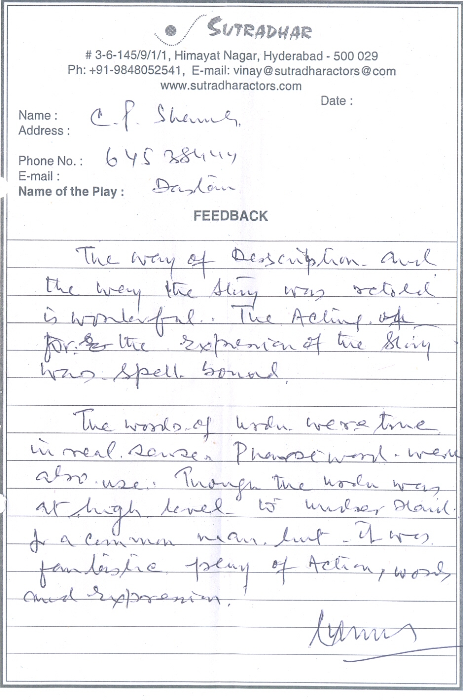 SUTRADHAR
# 3-6-145/9/1/1, Himayat Nagar, Hyderabad - 500 029
Ph: +91-9848052541, E-mail: vinay@sutradharactors@com
www.sutradharactors.com
Date :
Name : C. P. Sharma
Address :
Phone No. : 645 38444
E-mail :
Name of the Play : Dastan
FEEDBACK
The way of Desscription and
the way the story was retold
is wonderful. The Acting
for the expression of the story
was spell bound.
The words of urdu were true
in real sense. word were
also use. Though the urdu was
at high level to under stand
for a common man, but it was
fantastic play of Action, words
and expression.